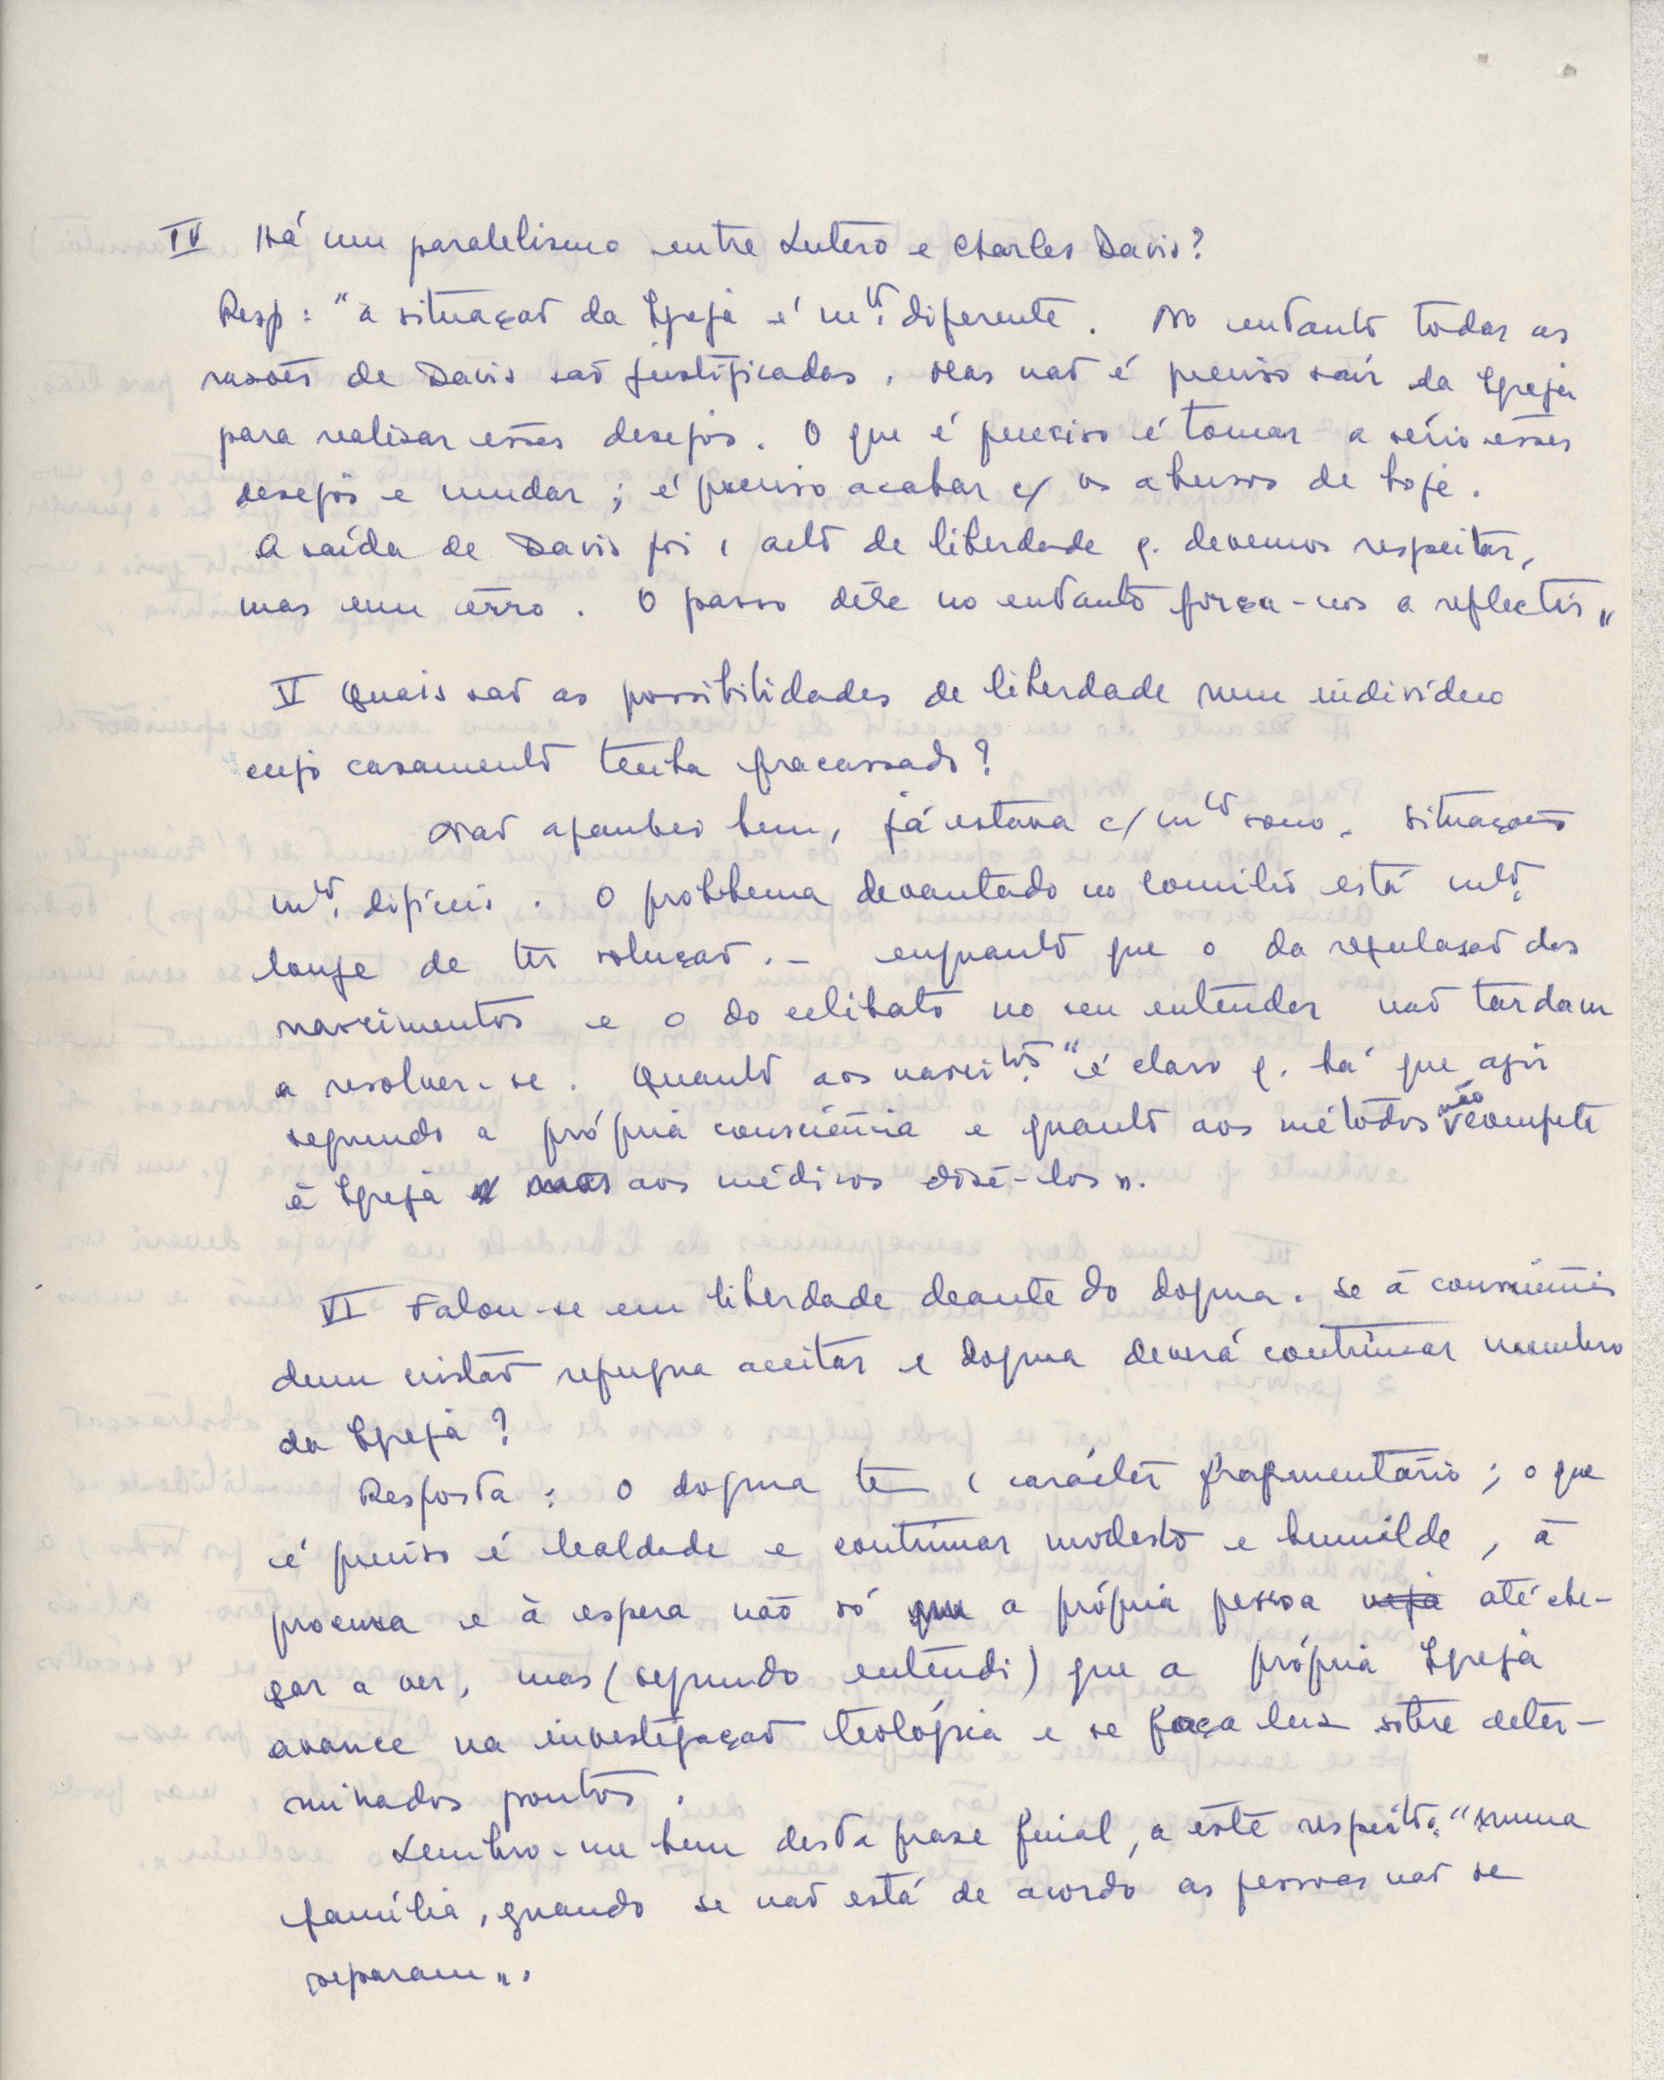 IV Há um paralelismo entre Lutero e Charles Davis?
Resp: "a situação da Igreja é mto. diferente. No entanto todas as
rasões de Davis são justificadas. Mas não é preciso saír da Igreja
para realisar esses desejos. O que é preciso é tomar a sério esses
desejos e mudar; é preciso acabar c/ os abusos de hoje.
A saída de Davis foi 1 acto de liberdade q. devemos respeitar,
mas um êrro. O passo dêle no entanto força-nos a reflectir"
V Quais são as possibilidades de liberdade num indivíduo
cujo casamento tenha fracassado?
Não apanhei bem, já estava c/ mto sono. Situações
mto. difíceis. O problema levantado no Concilio está mto.
longe de ter solução. - enquanto que o da regulação dos
nascimentos e o do celibato no seu entender não tardam
a resolver-se. Quanto aos nascitos. "é claro q. há que agir
segundo a própria consciência e quanto aos métodos não compete
à Igreja mas aos médicos dizê-los".
VI Falou-se em liberdade deante do dogma. Se à consciência
dum cristão repugna aceitar e dogma deverá continuar membro
da Igreja?
Resposta: O dogma tem 1 carácter fragmentário; o que
é preciso é lealdade e continuar modesto e humilde, à
procura e à espera não só que a própria pessoa veja até che-
gar a ver, mas (segundo entendi) que a própria Igreja
avance na investigação teológica e se faça luz sobre deter-
minados pontos.
Lembro-me bem desta frase final, a êste respeito. "numa
família, quando se não está de acordo as pessoas não se
separam".